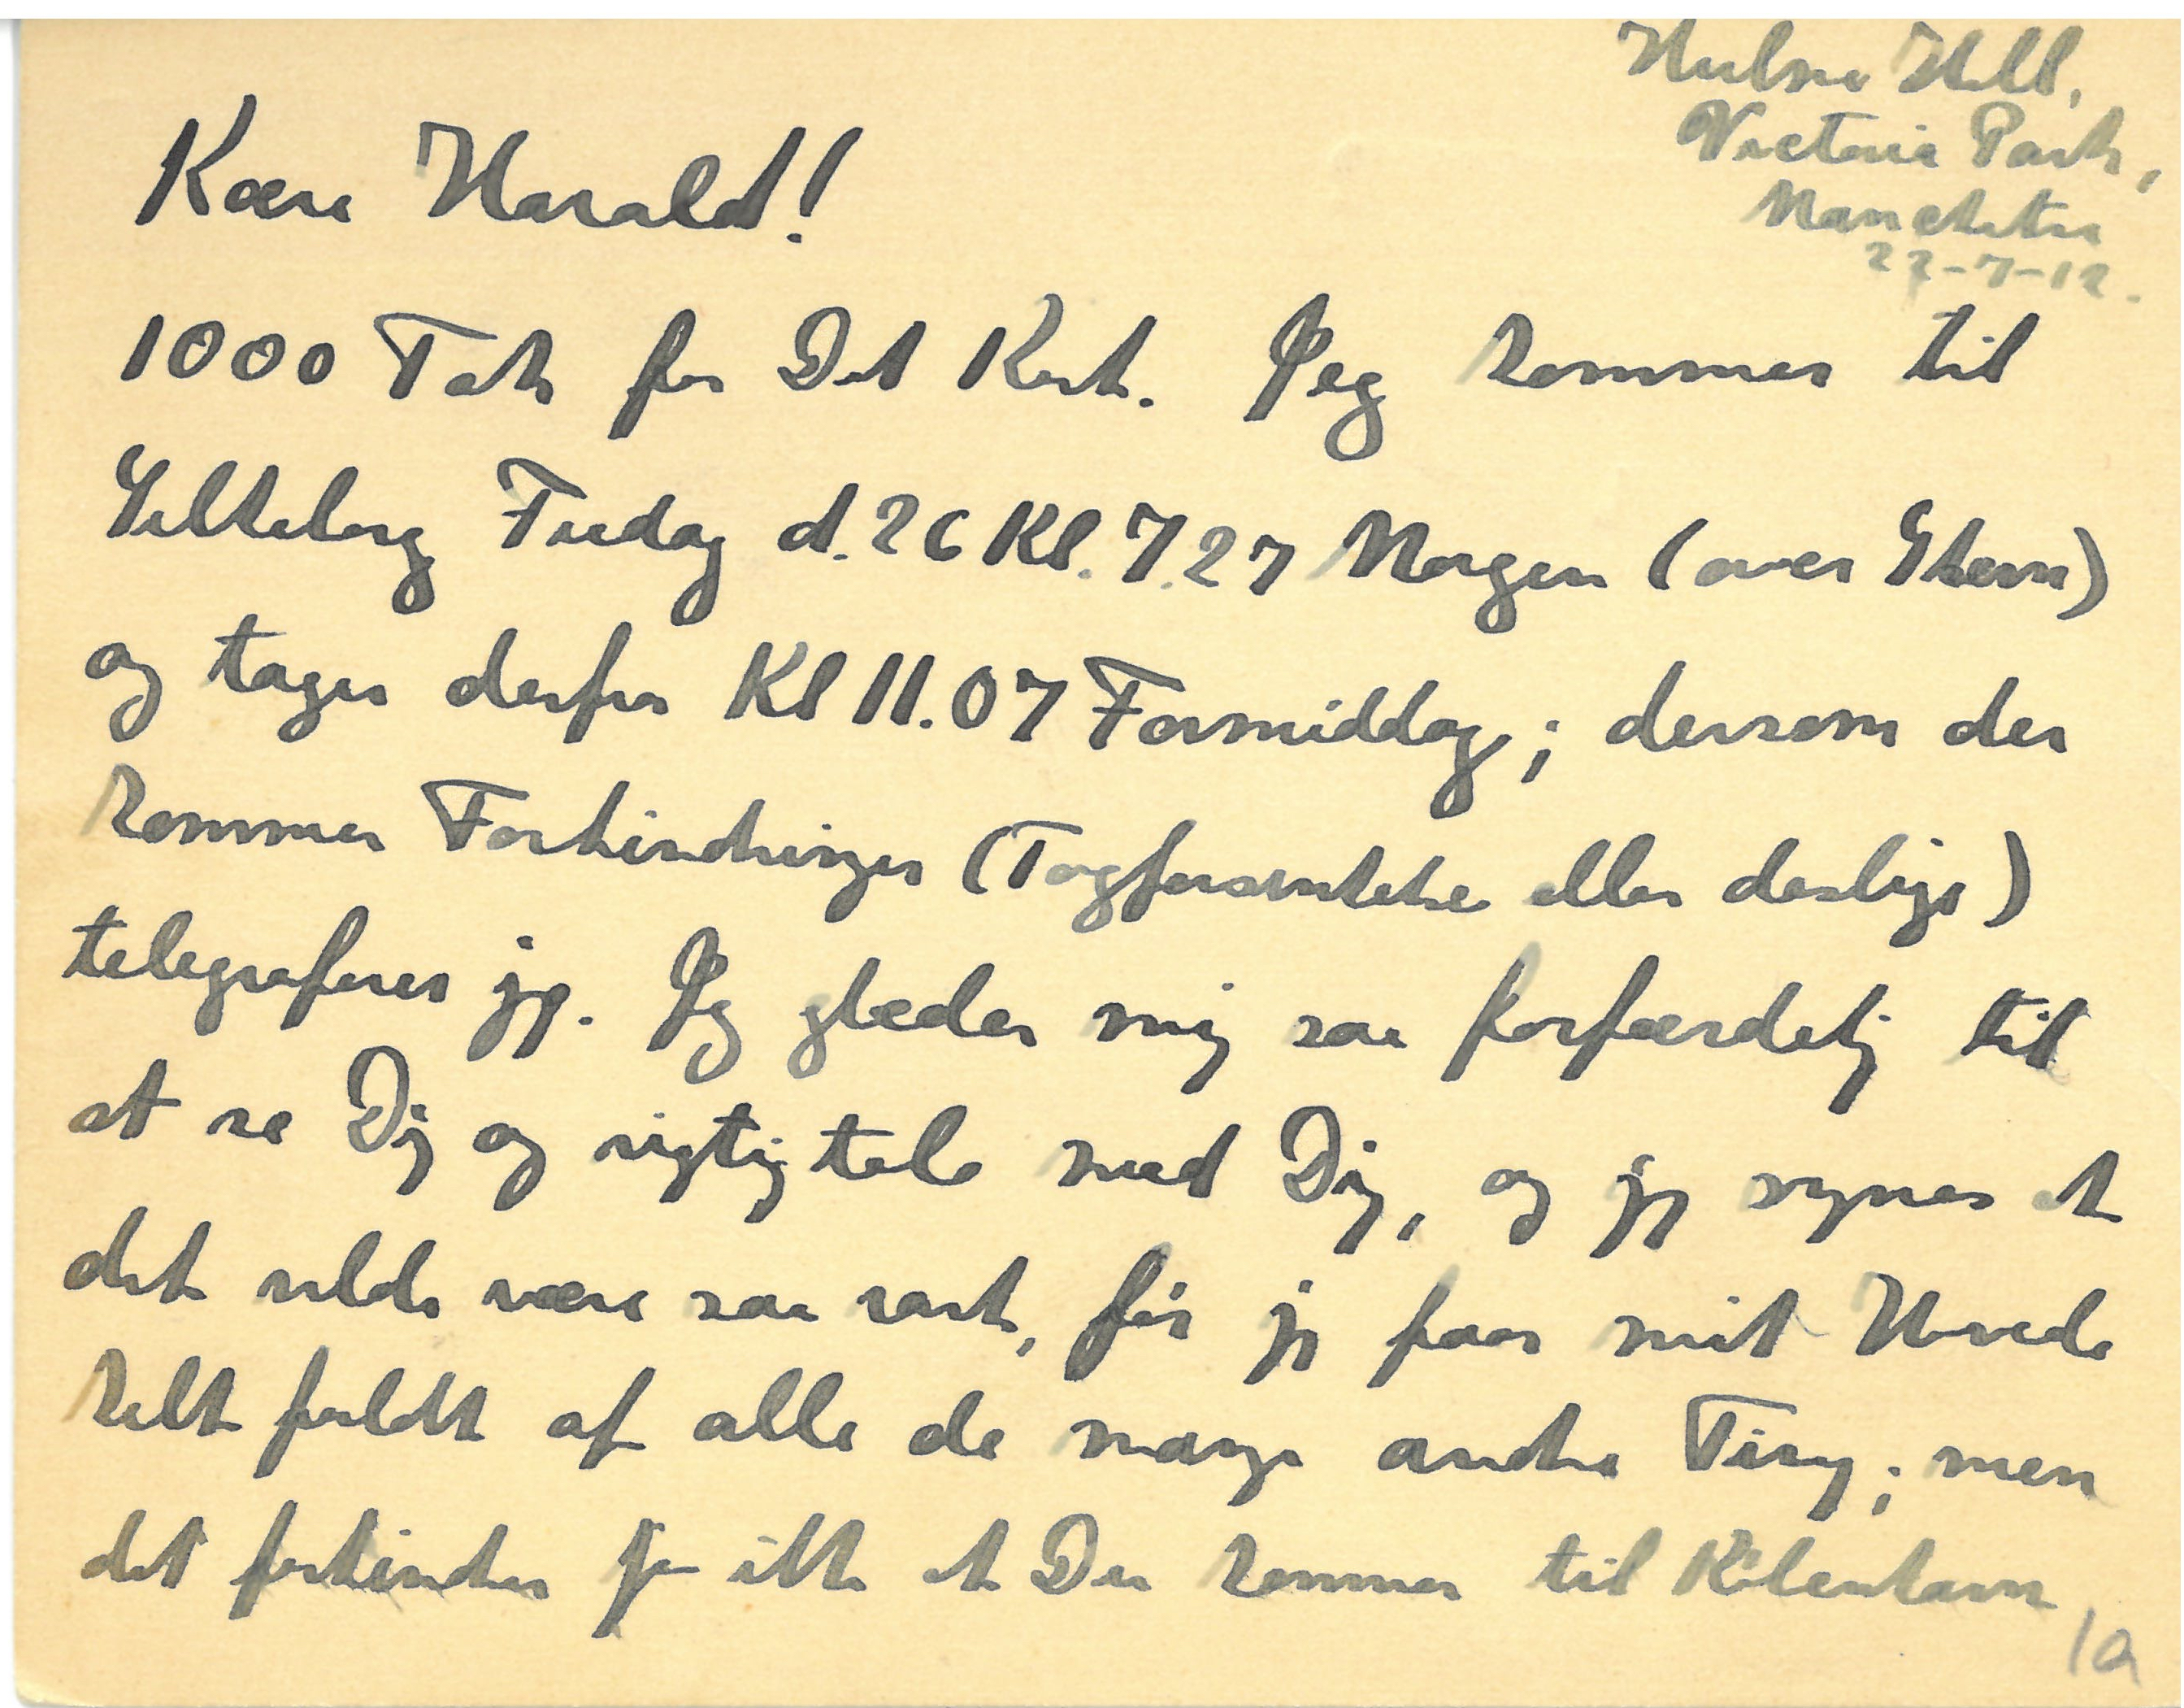 Hulme Hall,
Victoria Park,
Manchester
22-7-12.
Kære Harald!
1000 Tak for Dit Kort. Jeg kommer til
Silkeborg Fredag d. 26 Kl. 7.27 Morgen (over Skern)
og tager derfra Kl 11.07 Formiddag; dersom der
kommer Forhindringer (Togforsinkelse eller deslige)
telegraferer jeg. Jeg glæder mig saa forfærdelig til
at se Dig og rigtig tale med Dig, og jeg synes at
det vilde være saa rart, før jeg faar mit Hoved
helt fyldt af alle de mange andre Ting; men
det forhindrer jo ikke at Du kommer til København
1a